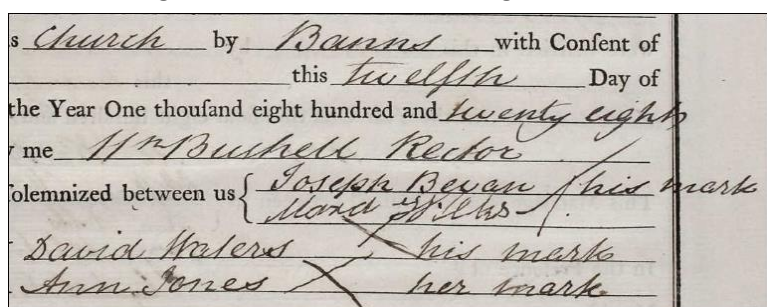 s Church by Banns with Conſent of
this twelfth Day of
the Year One thouſand eight hundred and twenty eight
me Wm Bushell Rector
olemnized between us { Joseph Bevan his mark
David Waters his mark
Ann Jones her mark